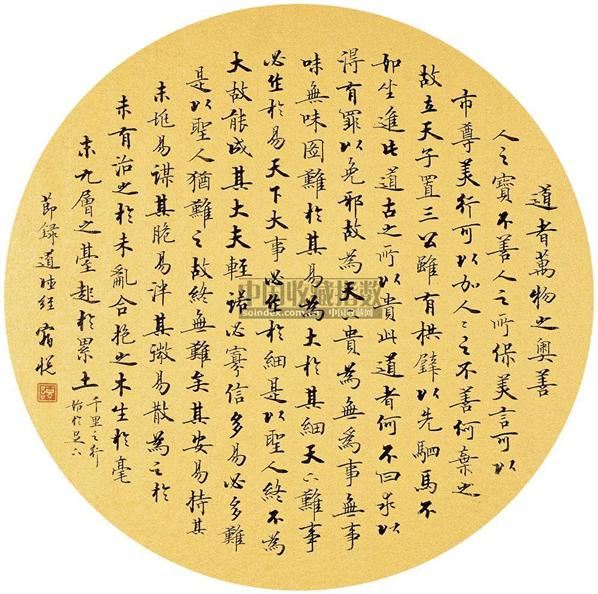 道者萬物之奧善
人之寶不善人之所保美言可以
市尊美行可以加人人之不善何棄之
故立天子置三公雖有拱璧以先駟馬不
如坐進此道古之所以貴此道者何不曰求以
得有罪以免邪故為天下貴為無為事無事
味無味圖難於其易為大於其細天下難事
必作於易天下大事必作於細是以聖人終不為
大故能成其大夫輕諾必寡信多易必多難
是以聖人猶難之故終無難矣其安易持其
未兆易謀其脆易泮其微易散為之於
未有治之於未亂合抱之木生於毫
末九層之臺起於累土
千里之行
始於足下
節錄道德經
中国收藏指数
soindex.com 中国收藏网